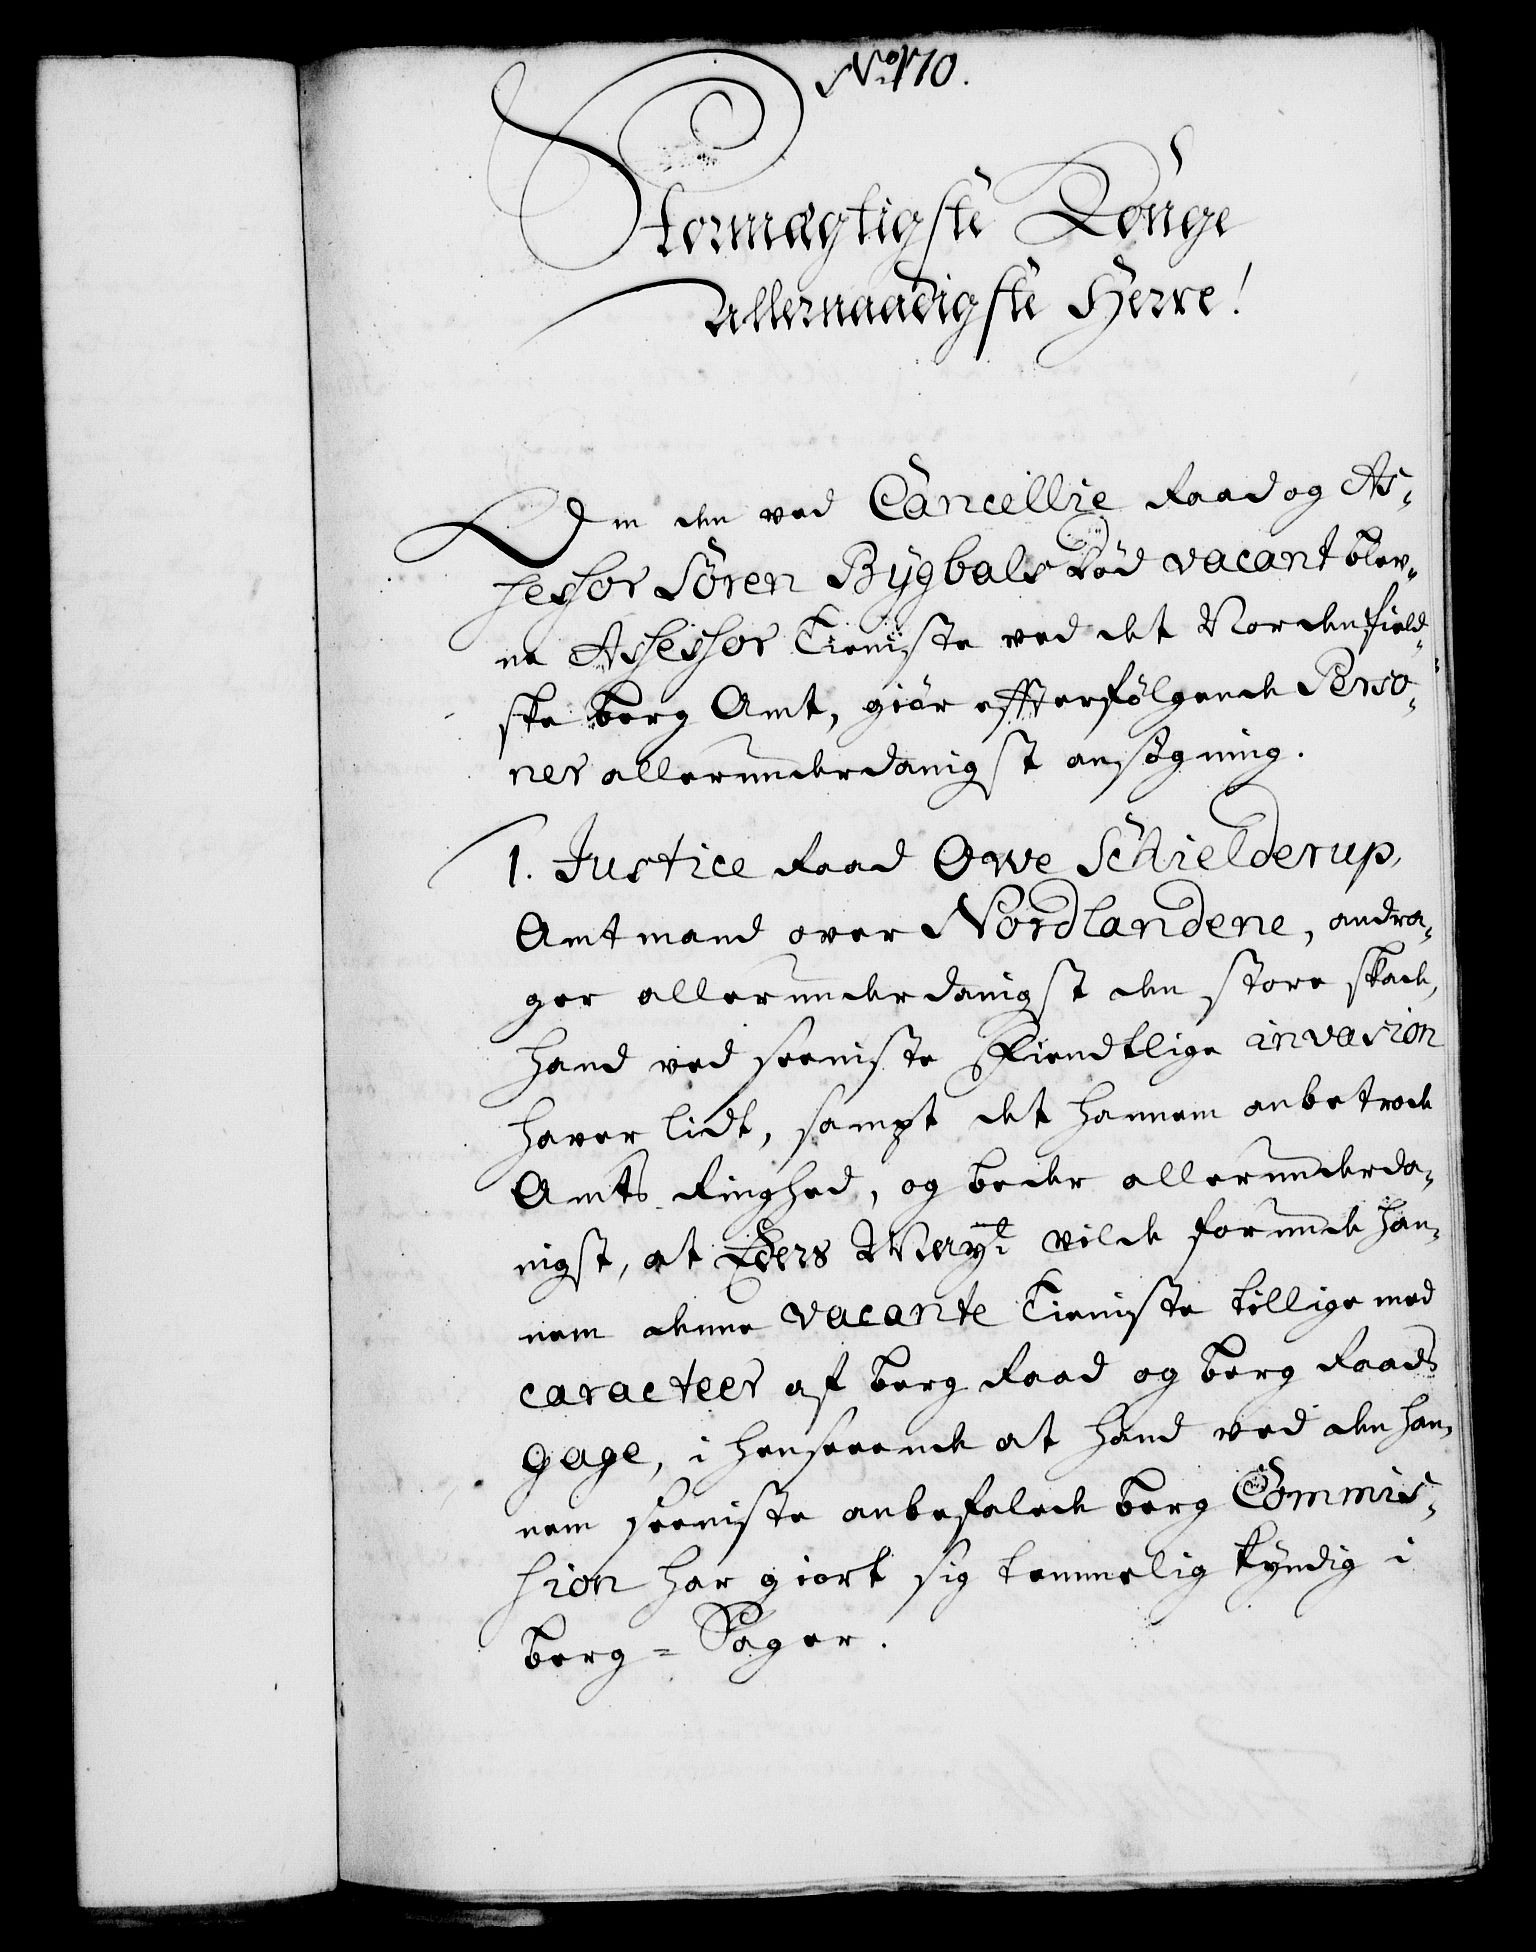 No. 170.
Stormægtigste Konge
Allernaadigste Herre!
Om den ved Cancellie Raad og As-
sessor Sören Bygbals Död vacant blev-
ne Assessor Tieniste ved det Nordenfield-
ske berg Amt, giör effterfölgende Perso-
ner allerunderdanigst ansögning.
1. Justice Raad Owe Schielderup,
Amtmand over Nordlandene, andra-
ger allerunderdanigst den store skade,
hand ved seeniste Fiendtlige invasion
haver lidt, sampt det hannem anbetrode
Amts Ringhed, og beder allerunderda-
nigst, at Eders Mayt. vilde forunde han-
nem denne vacante Tieniste tillige med
caracteer af berg Raad og berg Raads
gage, i henseende at hand ved den han-
nem seeniste anbefalede berg Commis-
sion har giort sig temmelig kyndig i
berg-Sager.